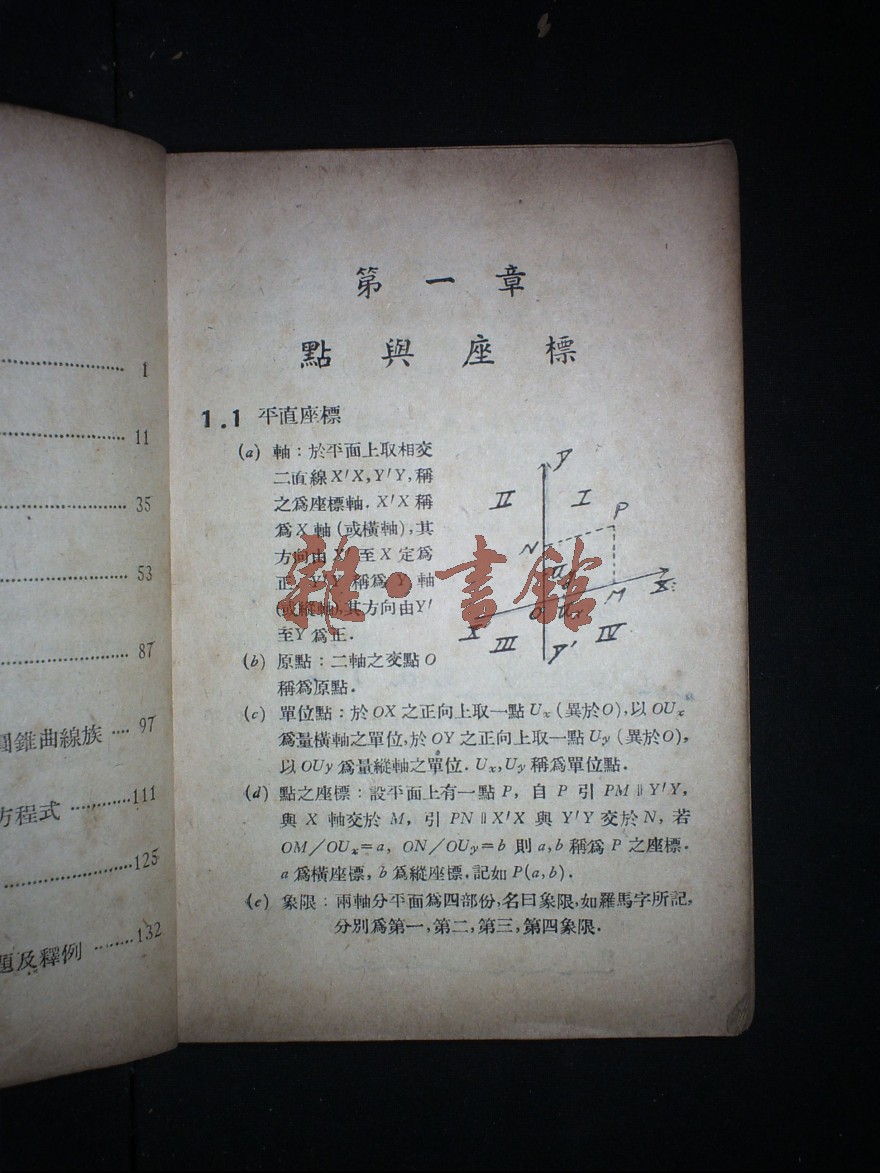 1
11
35
53
87
圓錐曲線族 97
方程式 111
125
題及釋例 132
第一章
點與座標
1.1 平直座標
(a) 軸：於平面上取相交
二直線X′X,Y′Y,稱
之爲座標軸．X′X稱
爲X軸(或橫軸),其
方向由X′至X定爲
正．Y′Y稱爲Y軸
(或縱軸),其方向由Y′
至Y爲正．
Y
II I
P
N
U
X
O U M
X
III Y′ IV
(b) 原點：二軸之交點O
稱爲原點．
(c) 單位點：於OX之正向上取一點Ux(異於O),以OUx
爲量橫軸之單位,於OY之正向上取一點Uy(異於O),
以OUy爲量縱軸之單位．Ux,Uy稱爲單位點．
(d) 點之座標：設平面上有一點P，自P引PM∥Y′Y,
與X軸交於M，引PN∥X′X與Y′Y交於N，若
OM/OUx=a, ON/OUy=b 則a,b稱爲P之座標．
a爲橫座標，b爲縱座標．記如P(a,b)．
(e) 象限：兩軸分平面爲四部份,名曰象限,如羅馬字所記,
分別爲第一,第二,第三,第四象限．
雜·書館